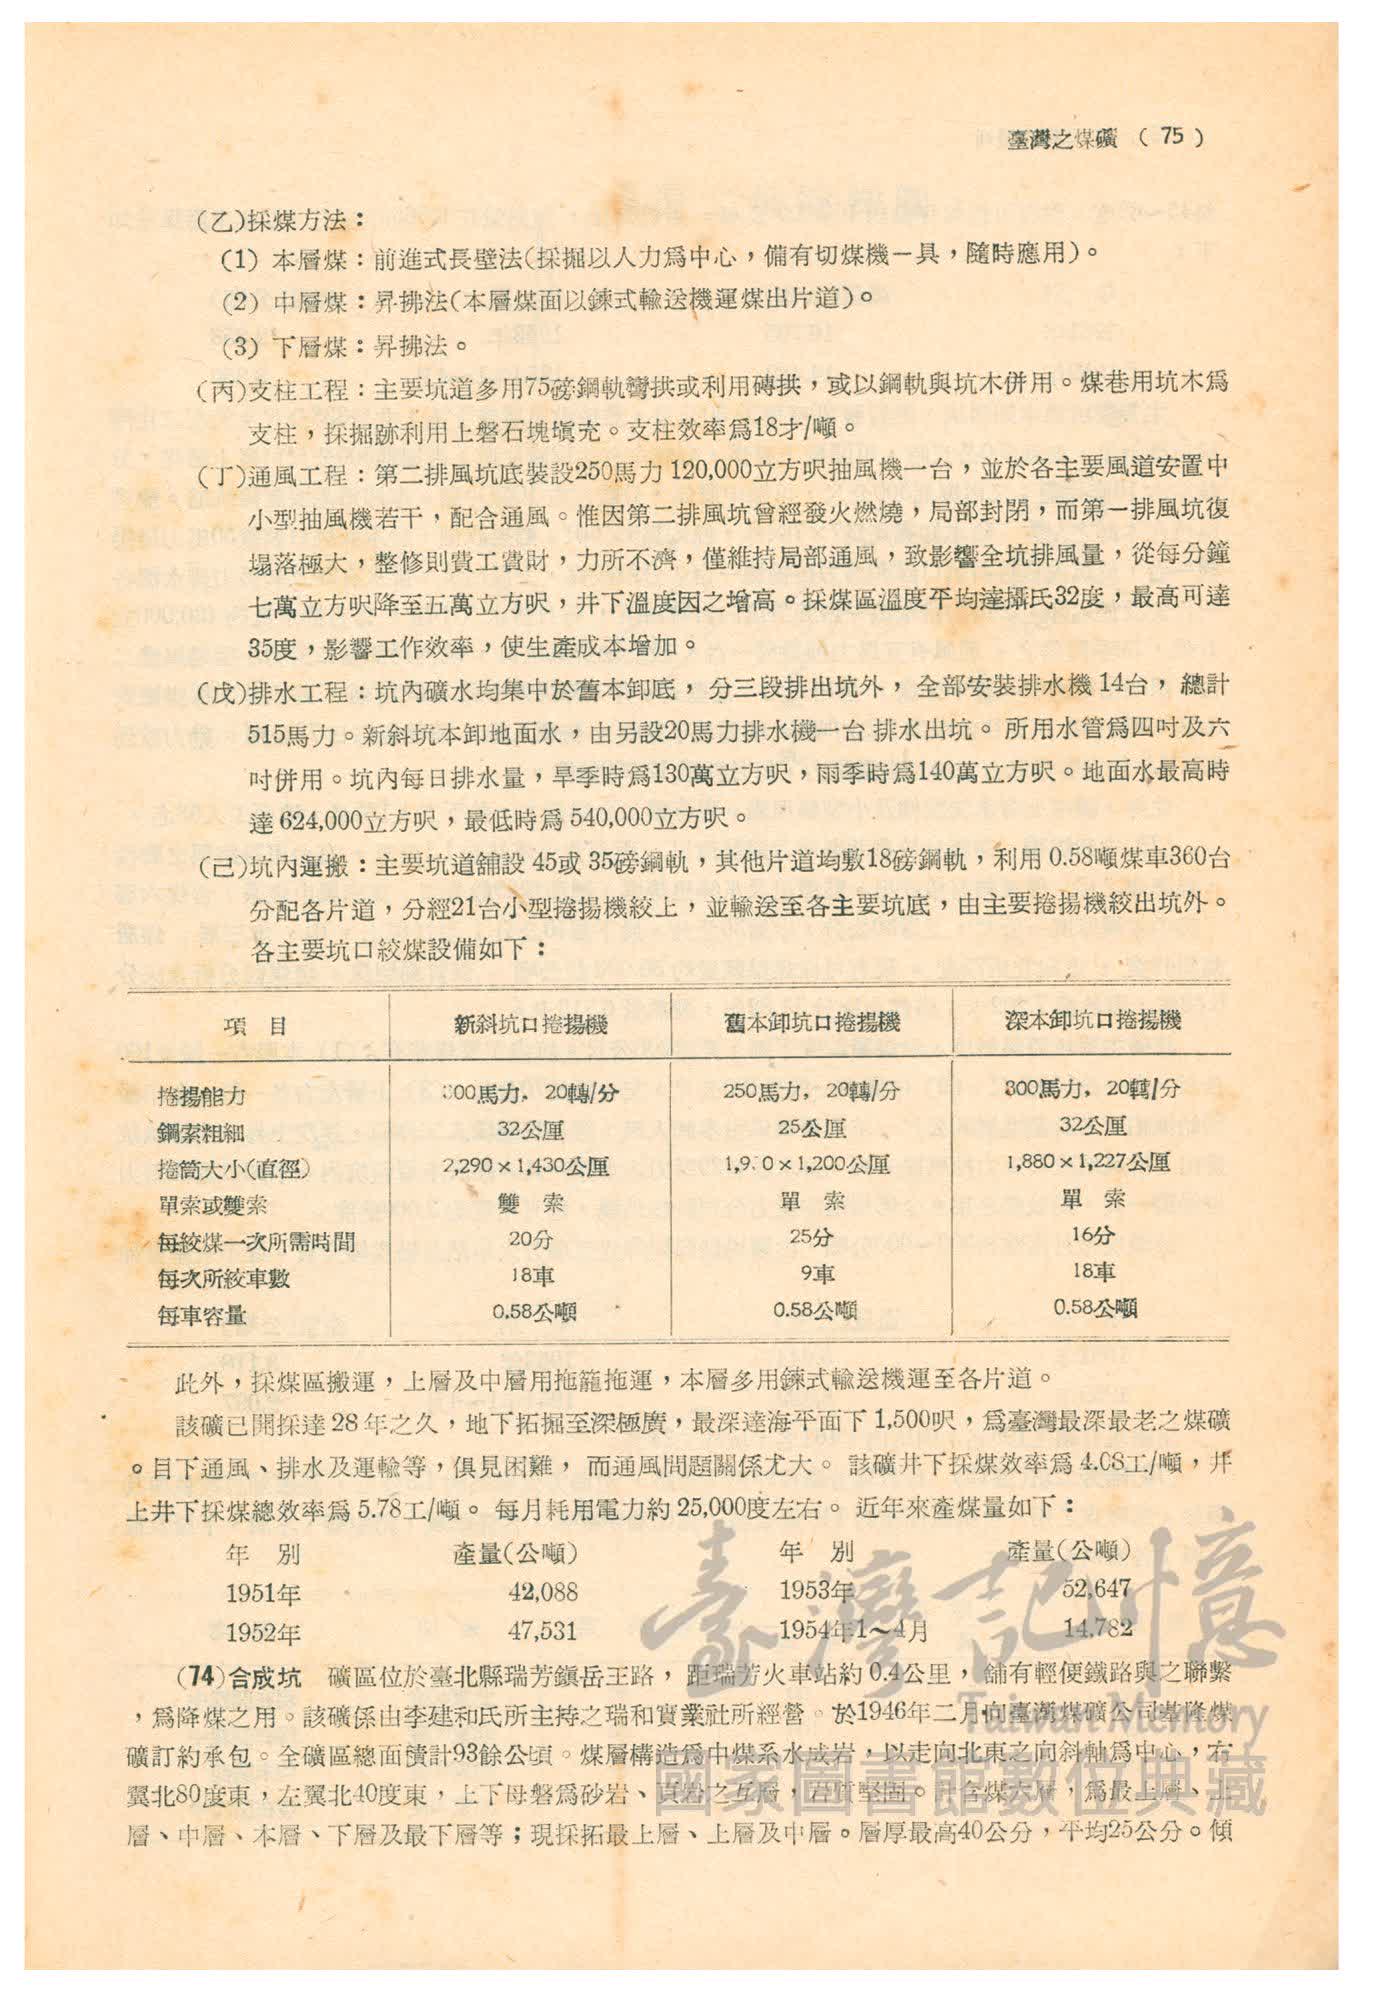 臺灣之煤礦 ( 75 )
(乙)採煤方法：
(1) 本層煤：前進式長壁法(採掘以人力爲中心，備有切煤機一具，隨時應用)。
(2) 中層煤：昇拂法(本層煤面以鍊式輸送機運煤出片道)。
(3) 下層煤：昇拂法。
(丙)支柱工程：主要坑道多用75磅鋼軌彎拱或利用磚拱，或以鋼軌與坑木併用。煤巷用坑木爲
支柱，採掘跡利用上磐石塊塡充。支柱效率爲18才/噸。
(丁)通風工程：第二排風坑底裝設250馬力 120,000立方呎抽風機一台，並於各主要風道安置中
小型抽風機若干，配合通風。惟因第二排風坑曾經發火燃燒，局部封閉，而第一排風坑復
塌落極大，整修則費工費財，力所不濟，僅維持局部通風，致影響全坑排風量，從每分鐘
七萬立方呎降至五萬立方呎，井下溫度因之增高。採煤區溫度平均達攝氏32度，最高可達
35度，影響工作效率，使生產成本增加。
(戊)排水工程：坑內礦水均集中於舊本卸底， 分三段排出坑外， 全部安裝排水機 14台， 總計
515馬力。新斜坑本卸地面水，由另設20馬力排水機一台 排水出坑。 所用水管爲四吋及六
吋併用。坑內每日排水量，旱季時爲130萬立方呎，雨季時爲140萬立方呎。地面水最高時
達 624,000立方呎，最低時爲 540,000立方呎。
(己)坑內運搬：主要坑道舖設 45或 35磅鋼軌，其他片道均敷18磅鋼軌，利用 0.58噸煤車360台
分配各片道，分經21台小型捲揚機絞上，並輸送至各主要坑底，由主要捲揚機絞出坑外。
各主要坑口絞煤設備如下：
項 目 新斜坑口捲揚機 舊本卸坑口捲揚機 深本卸坑口捲揚機
捲揚能力 300馬力，20轉/分 250馬力，20轉/分 300馬力，20轉/分
鋼索粗細 32公厘 25公厘 32公厘
捲筒大小(直徑) 2,290×1,430公厘 ×1,200公厘 1,880×1,227公厘
單索或雙索 雙 索 單 索 單 索
每絞煤一次所需時間 20分 25分 16分
每次所絞車數 18車 9車 18車
每車容量 0.58公噸 0.58公噸 0.58公噸
此外，採煤區搬運，上層及中層用拖籠拖運，本層多用鍊式輸送機運至各片道。
該礦已開採達 28 年之久，地下拓掘至深極廣，最深達海平面下 1,500呎，爲臺灣最深最老之煤礦
。目下通風、排水及運輸等，俱見困難， 而通風問題關係尤大。 該礦井下採煤效率爲 4.08工/噸，井
上井下採煤總效率爲 5.78工/噸。 每月耗用電力約 25,000度左右。 近年來產煤量如下：
年 別 產量(公噸) 年 別 產量(公噸)
1951年 42,088 1953年 52,647
1952年 47,531 1954年1～4月 14,782
(74)合成坑 礦區位於臺北縣瑞芳鎭岳王路， 距瑞芳火車站約 0.4公里， 舖有輕便鐵路與之聯繫
，爲降煤之用。該礦係由李建和氏所主持之瑞和實業社所經營。於1946年二月向臺灣煤礦公司基隆煤
礦訂約承包。全礦區總面積計93餘公頃。煤層構造爲中煤系水成岩，以走向北東之向斜軸爲中心，右
翼北80度東，左翼北40度東，上下母磐爲砂岩、頁岩之互層，岩質堅固。計含煤六層，爲最上層、上
層、中層、本層、下層及最下層等；現採拓最上層、上層及中層。層厚最高40公分，平均25公分。傾
臺灣記憶
Taiwan Memory
國家圖書館數位典藏